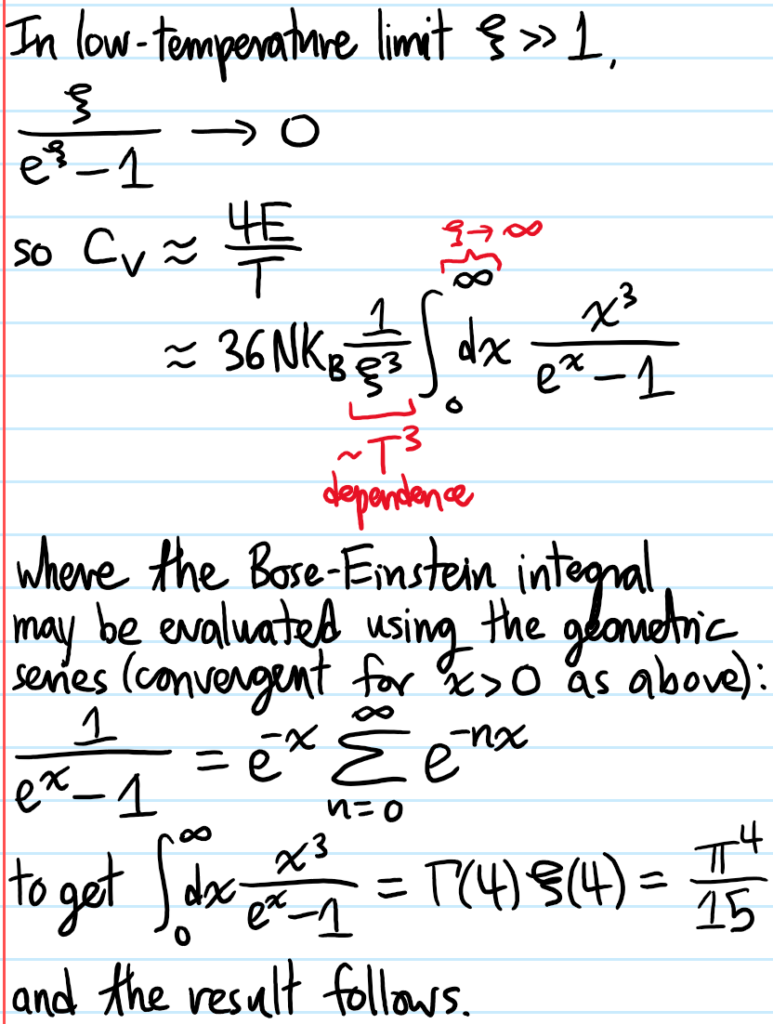 In low-temperature limit ξ >> 1,
ξ/(e^ξ − 1) → 0
so C_V ≈ 4E/T
ξ → ∞
≈ 36NK_B 1/ξ³ ∫₀^∞ dx x³/(e^x − 1)
~T³
dependence
where the Bose-Einstein integral
may be evaluated using the geometric
series (convergent for x>0 as above):
1/(e^x − 1) = e^−x ∑_{n=0}^∞ e^−nx
to get ∫₀^∞ dx x³/(e^x − 1) = Γ(4) ξ(4) = π⁴/15
and the result follows.